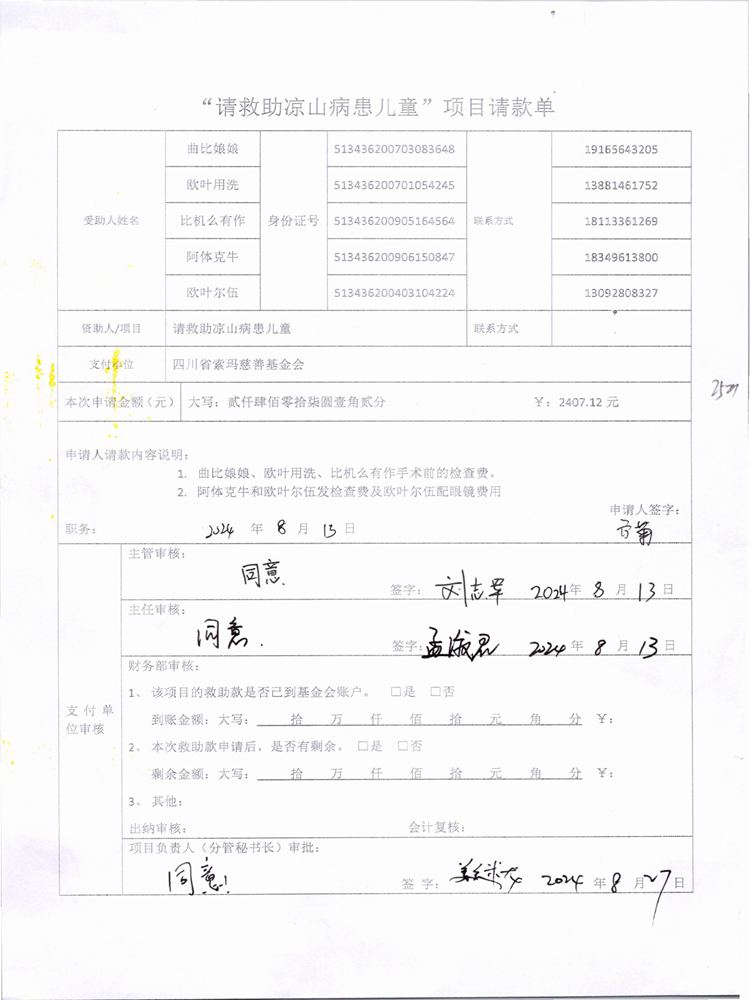 “请救助凉山病患儿童”项目请款单
受助人姓名 曲比娘娘 身份证号 513436200703083648 联系方式 19165643205
欧叶用洗 513436200701054245 13881461752
比机么有作 513436200905164564 18113361269
阿体克牛 513436200906150847 18349613800
欧叶尔伍 513436200403104224 13092808327
资助人/项目 请救助凉山病患儿童 联系方式
支付单位 四川省索玛慈善基金会
本次申请金额（元） 大写：贰仟肆佰零拾柒圆壹角贰分 ￥：2407.12 元
申请人请款内容说明：
1. 曲比娘娘、欧叶用洗、比机么有作手术前的检查费。
2. 阿体克牛和欧叶尔伍发检查费及欧叶尔伍配眼镜费用
申请人签字：
职务： 2024 年 8 月 13 日
支付单位审核
主管审核：
同意
签字： 2024年 8 月 13 日
主任审核：
同意.
签字： 2024 年 8 月 13 日
财务部审核：
1、 该项目的救助款是否已到基金会账户。 □是 □否
到账金额：大写： 拾 万 仟 佰 拾 元 角 分 ￥：
2、 本次救助款申请后，是否有剩余。□是 □否
剩余金额：大写： 拾 万 仟 佰 拾 元 角 分 ￥：
3、 其他：
出纳审核： 会计复核：
项目负责人（分管秘书长）审批：
同意!
签 字： 2024 年 8 月 27 日